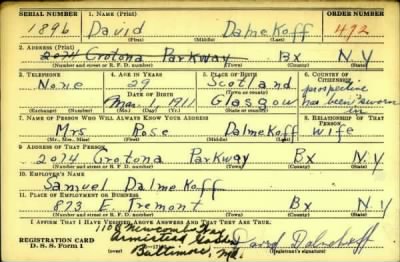 SERIAL NUMBER 1. NAME (Print) ORDER NUMBER
1896 David Dalmekoff 492
(First) (Middle) (Last)
2. ADDRESS (Print)
2074 Crotona Parkway Bx N Y
(Number and street or R. F. D. number) (Town) (County) (State)
3. TELEPHONE 4. AGE IN YEARS 5. PLACE OF BIRTH 6. COUNTRY OF CITIZENSHIP
None 29 Scotland prospective
DATE OF BIRTH (Town or county)
Mar. 1, 1911 Glasgow has been sworn in
(Exchange) (Number) (Mo.) (Day) (Yr.) (State or country)
7. NAME OF PERSON WHO WILL ALWAYS KNOW YOUR ADDRESS 8. RELATIONSHIP OF THAT PERSON
Mrs Rose Dalmekoff wife
(Mr., Mrs., Miss) (First) (Middle) (Last)
9. ADDRESS OF THAT PERSON
2074 Crotona Parkway Bx N.Y
(Number and street or R. F. D. number) (Town) (County) (State)
10. EMPLOYER'S NAME
Samuel Dalmekoff
11. PLACE OF EMPLOYMENT OR BUSINESS
873 E. Tremont Bx N.Y
(Number and street or R. F. D. number) (Town) (County) (State)
I AFFIRM THAT I HAVE VERIFIED ABOVE ANSWERS AND THAT THEY ARE TRUE.
1108
Armistead
REGISTRATION CARD David Dalmekoff
D. S. S. Form 1 Baltimore, Md. (Registrant's signature)